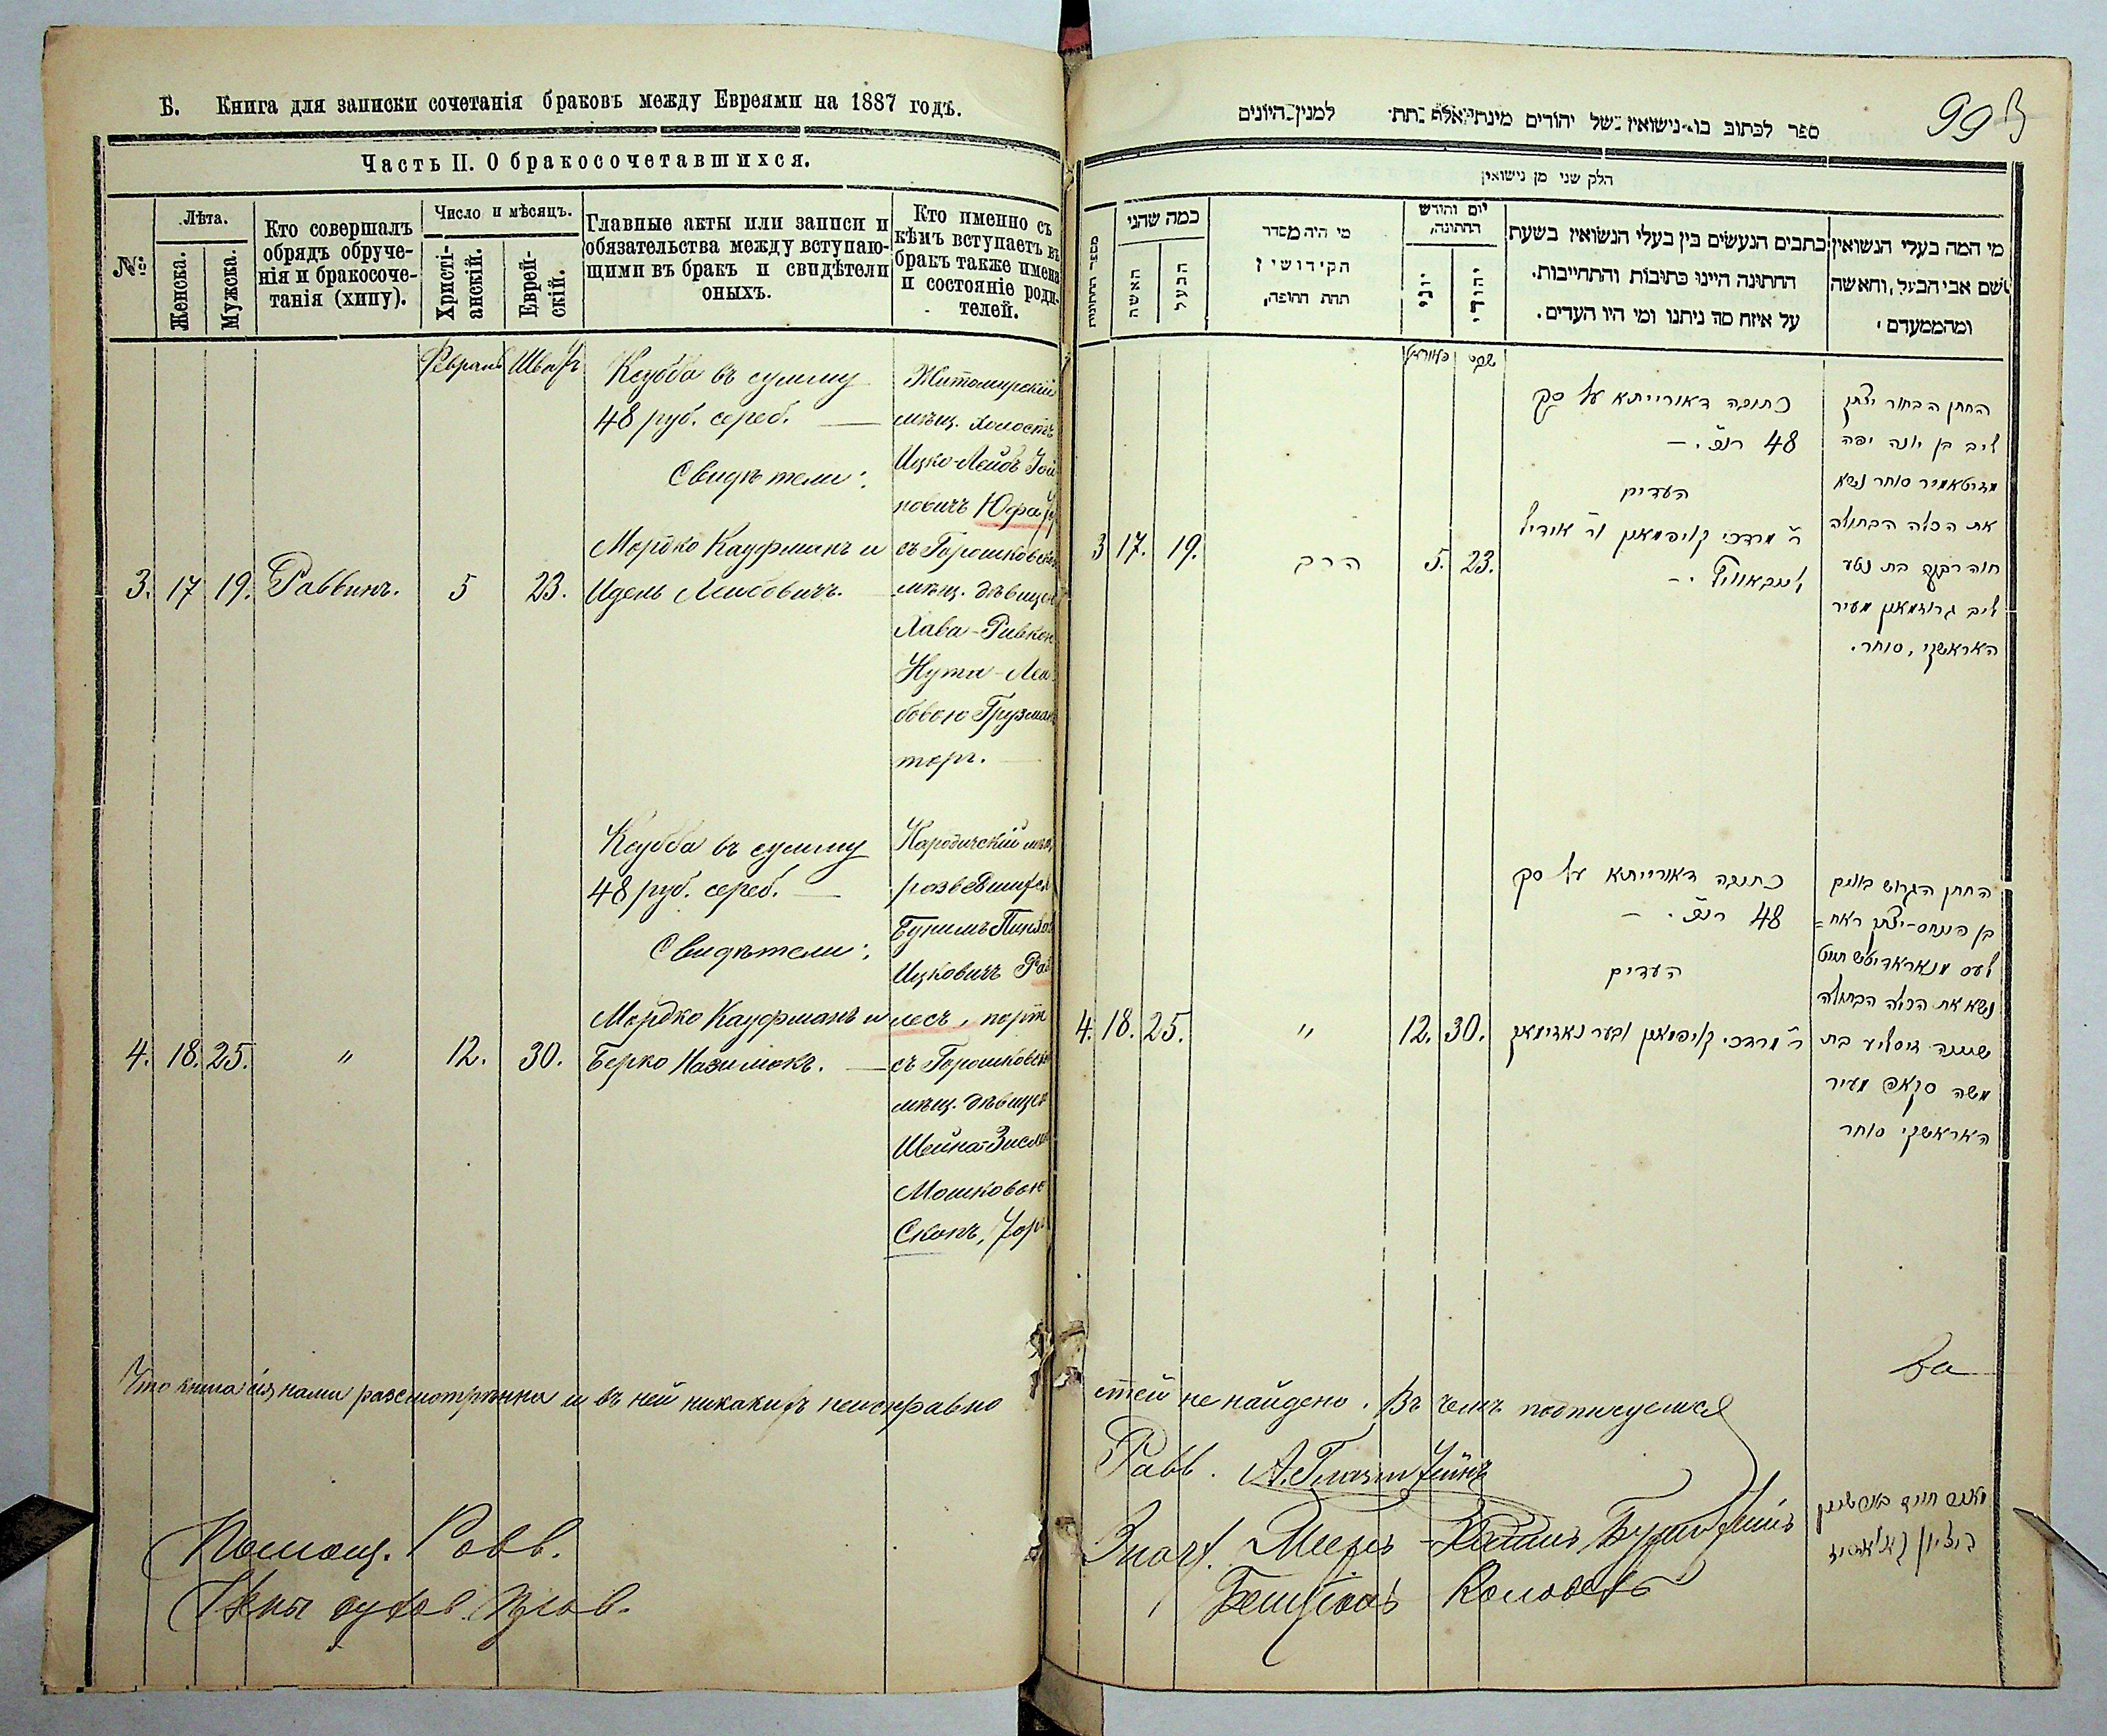 Б. Книга для записки сочетанія браковъ между Евреями на 1887 годъ.
Часть II. О бракосочетавшихся.
№
Лѣта.
Женска.
Мужска.
Кто совершалъ
обрядъ обруче-
нія и бракосоче-
танія (хипу).
Число и мѣсяцъ.
Христі-
анскій.
Еврей-
скій.
Главные акты или записи и
обязательства между вступаю-
щими въ бракъ и свидѣтели
оныхъ.
Кто именно съ
кѣмъ вступаетъ въ
бракъ также имена
и состояніе роди-
телей.
Февраль Шватъ
3. 17 19. Раввинъ. 5 23.
Ксубба въ сумму
48 руб. сереб.
Свидѣтели:
Мордко Кауфманъ и
Идель Лейбовичъ.
Житомирскій
мѣщ. холостъ
Ицко-Лейбъ Іой
новичъ Юфа
съ Горошковск
мѣщ. дѣвицею
Хава-Ривкою
Нута-Лей
бовою Грузман
торг.
4. 18. 25. " 12. 30.
Ксубба въ сумму
48 руб. сереб.
Свидѣтели:
Мордко Кауфманъ и
Берко Назимокъ.
Народичскій мѣщ
разведшійся
Бунимъ Пинхос
Ицковичъ Рай
лесъ, порт
съ Горошковск
мѣщ. дѣвицею
Шейна-Зисля
Мошковою
Скопъ,
Что книга сія нами разсмотрѣнна и въ ней никакихъ неисправно
Помощ. Равв.
Члены духов. прав.
ספר לכתוב בו נישואין של יהודים מינתי אלף תת למנין היונים
99
חלק שני מן נישואין
מספר החתונות
כמה שהני
האשה
הבעל
מי היה מסדר
הקידושין
תחת החופה,
יום וחודש
החתונה,
יוני
יהודי
כתבים הנעשים בין בעלי הנשואין בשעת
החתונה היינו כתובות והתחייבות.
על איזה סך ניתנו ומי היו העדים.
מי המה בעלי הנשואין
שם אבי הבעל, והאשה
ומהממעדם
פעווראל שבט
3 17. 19. הרב 5. 23.
כתובה דאורייתא על סך
48 רוב׳.
העדים
ר׳ מרדכי קויפמאן ור׳ אודיל
לייבאוויץ
החתן הבחור יצחק
ליב בן יונה יפה
מזיטאמיר סוחר נשא
את הכלה הבתולה
חוה רבקה בת נטע
ליב גרוזמאן מעיר
האראשקי, סוחר.
4. 18. 25. " 12. 30.
כתובה דאורייתא על סך
48 רוב׳.
העדים
ר׳ מרדכי קויפמאן ובער נאזימאק
החתן הגרוש בונים
בן פינחס-יצחק ראח=
לעס מנאראדיטש חייט
נשא את הכלה הבתולה
שיינה זיסליע בת
משה סקאפ מעיר
האראשקי סוחר
стей не найдено. Въ чемъ подписуемся
Равв.